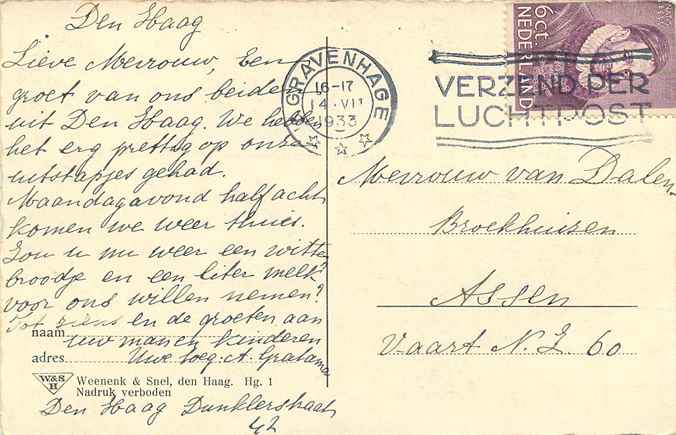 Den Haag
Lieve Mevrouw, Een
groet van ons beiden
uit Den Haag. We hebben
het erg prettig op onze
uitstapjes gehad.
Maandagavond half acht
komen we weer thuis.
Zou u nu weer een witte
broodje en een liter melk
voor ons willen nemen?
Tot ziens en de groeten aan
naam uw man en kinderen
adres Uwe toeg: A. Gratama
W&S
H
Weenenk & Snel, den Haag. Hg. 1
Nadruk verboden
Den Haag Dunklerstraat
42
'S GRAVENHAGE
16-17
14 VII
1933
VERZEND PER
LUCHTPOST
6ct
NEDERLAND
Mevrouw van Dalen-
Broekhuisen
Assen
Vaart N.Z. 60